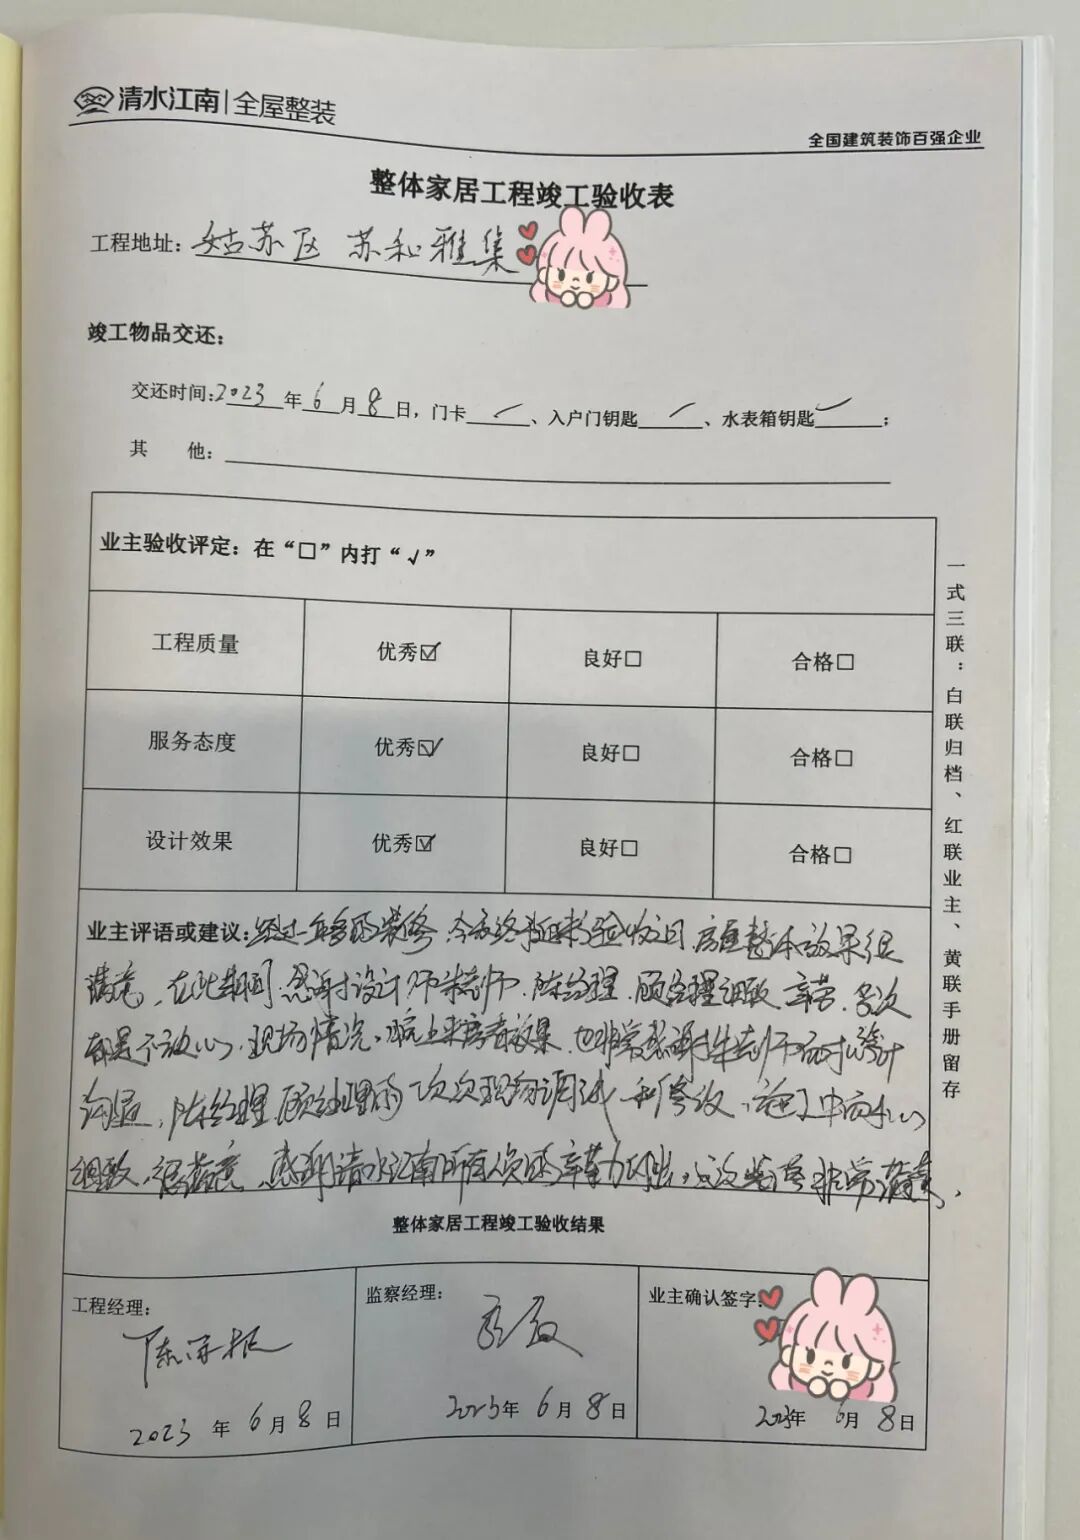 清水江南|全屋整装
全国建筑装饰百强企业
整体家居工程竣工验收表
工程地址：姑苏区 苏和雅集
竣工物品交还：
交还时间：2023年6月8日，门卡✓、入户门钥匙✓、水表箱钥匙✓；
其 他：
业主验收评定：在“□”内打“√”
工程质量 优秀☑ 良好□ 合格□
服务态度 优秀☑ 良好□ 合格□
设计效果 优秀☑ 良好□ 合格□
业主评语或建议：经过一年多的装修，今天终于迎来验收之日，房屋整体效果很
满意，在此期间，感谢设计师朱老师、陈经理、顾经理细致辛苦，多次
现场情况，晚上来看效果，也非常感谢朱老师设计
沟通，陈经理、顾经理的一次次现场调试和修改，施工中耐心
细致，很满意，感谢清水江南所有人员的辛勤付出，这次装修非常满意，
整体家居工程竣工验收结果
工程经理：
2023年6月8日
监察经理：
2023年6月8日
业主确认签字：
2023年6月8日
一式三联：白联归档、红联业主、黄联手册留存